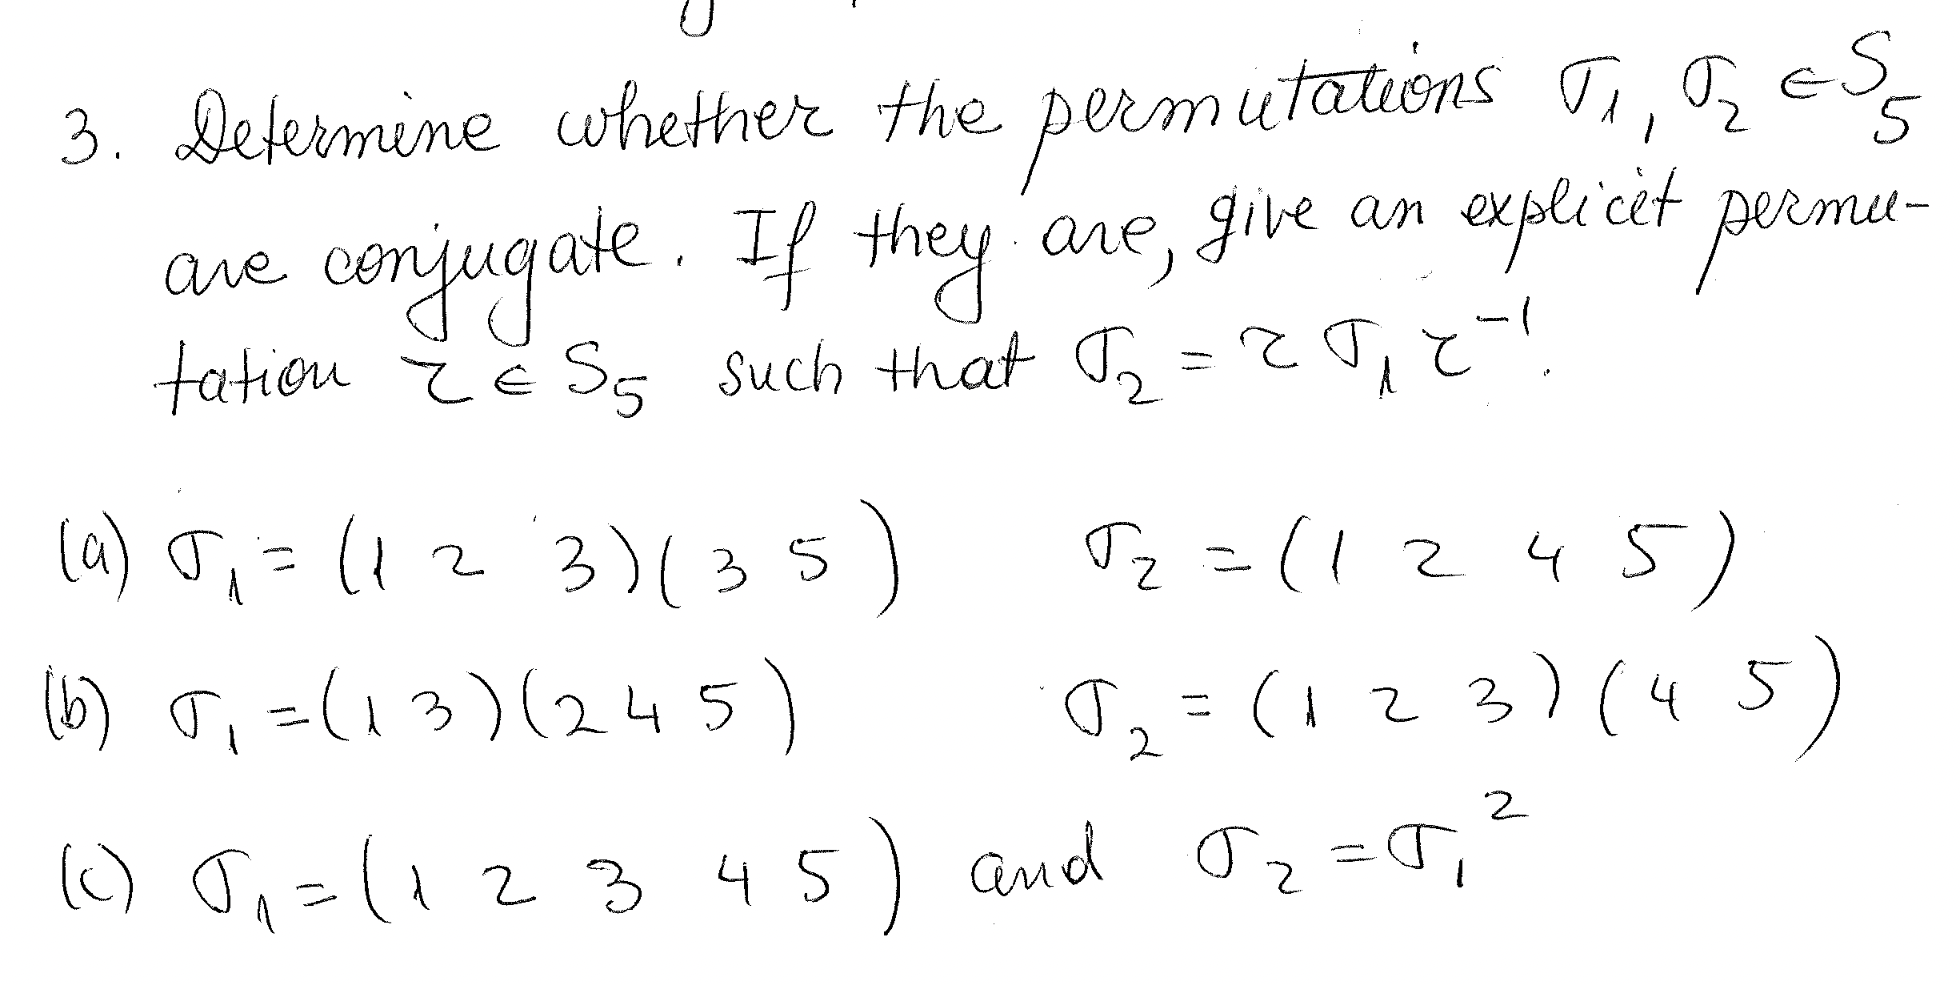 3. Determine whether the permutations σ₁, σ₂ ∈ S₅
are conjugate. If they are, give an explicit permu-
tation τ ∈ S₅ such that σ₂ = τ σ₁ τ⁻¹.
(a) σ₁ = (1 2 3)(3 5) σ₂ = (1 2 4 5)
(b) σ₁ = (1 3)(2 4 5) σ₂ = (1 2 3)(4 5)
(c) σ₁ = (1 2 3 4 5) and σ₂ = σ₁²